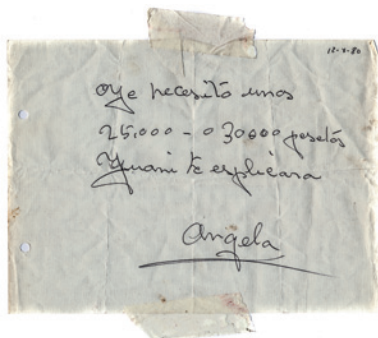 12-4-80
Oye necesito unos
25,000 - o 30000 pesetas
Yuani te esplicara
Angela